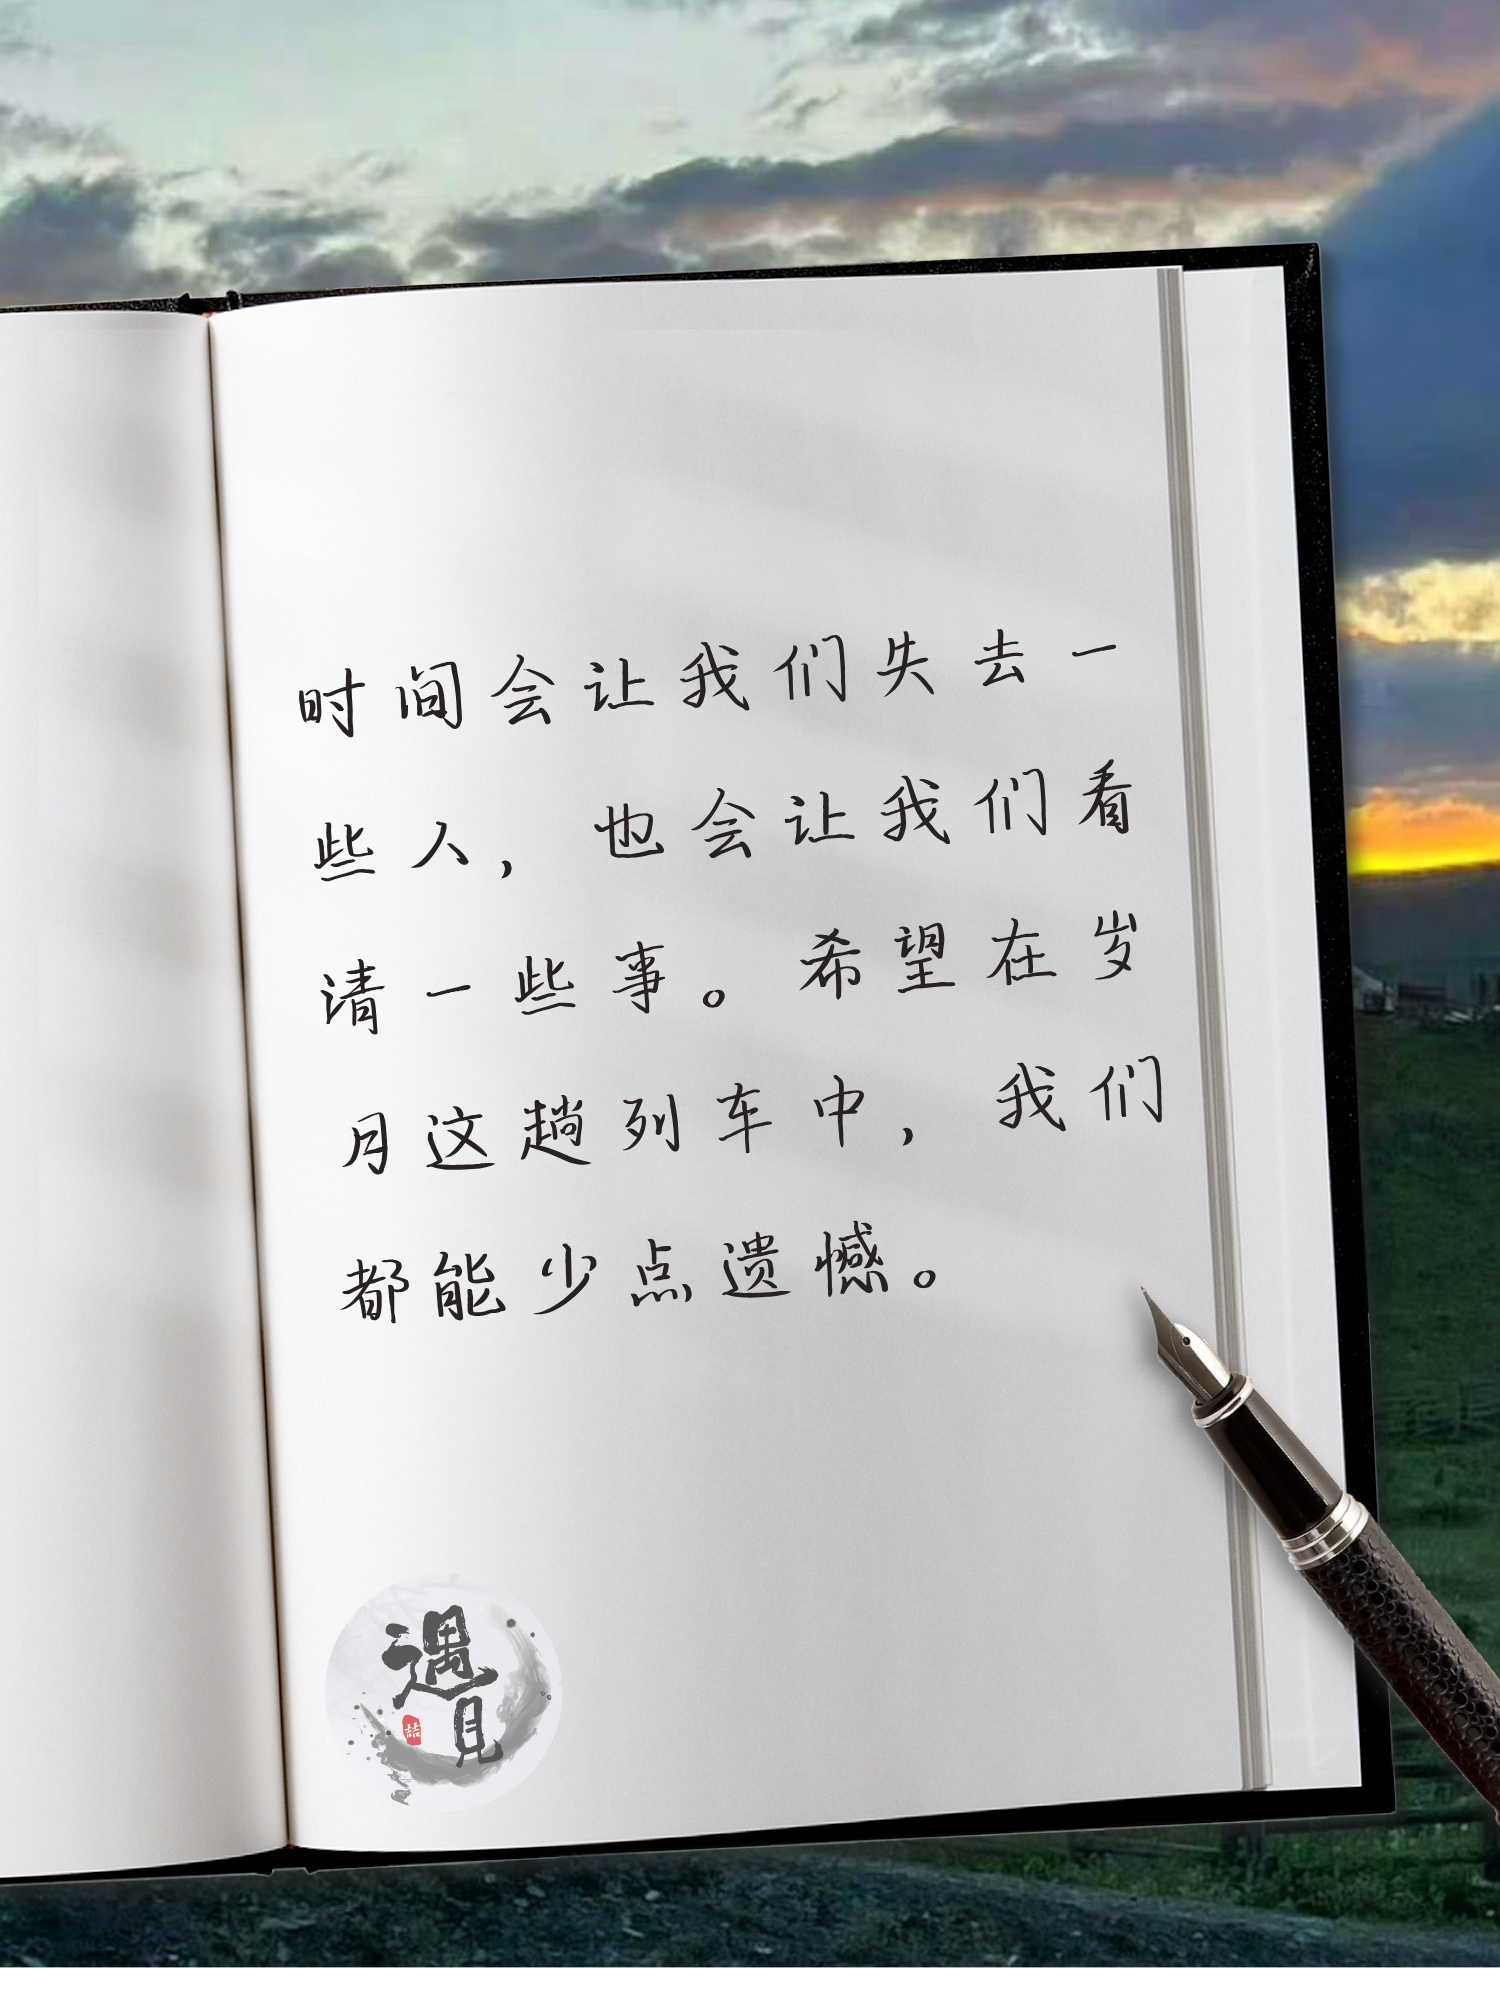 时间会让我们失去一
些人，也会让我们看
请一些事。希望在岁
月这趟列车中，我们
都能少点遗憾。
遇见
喆